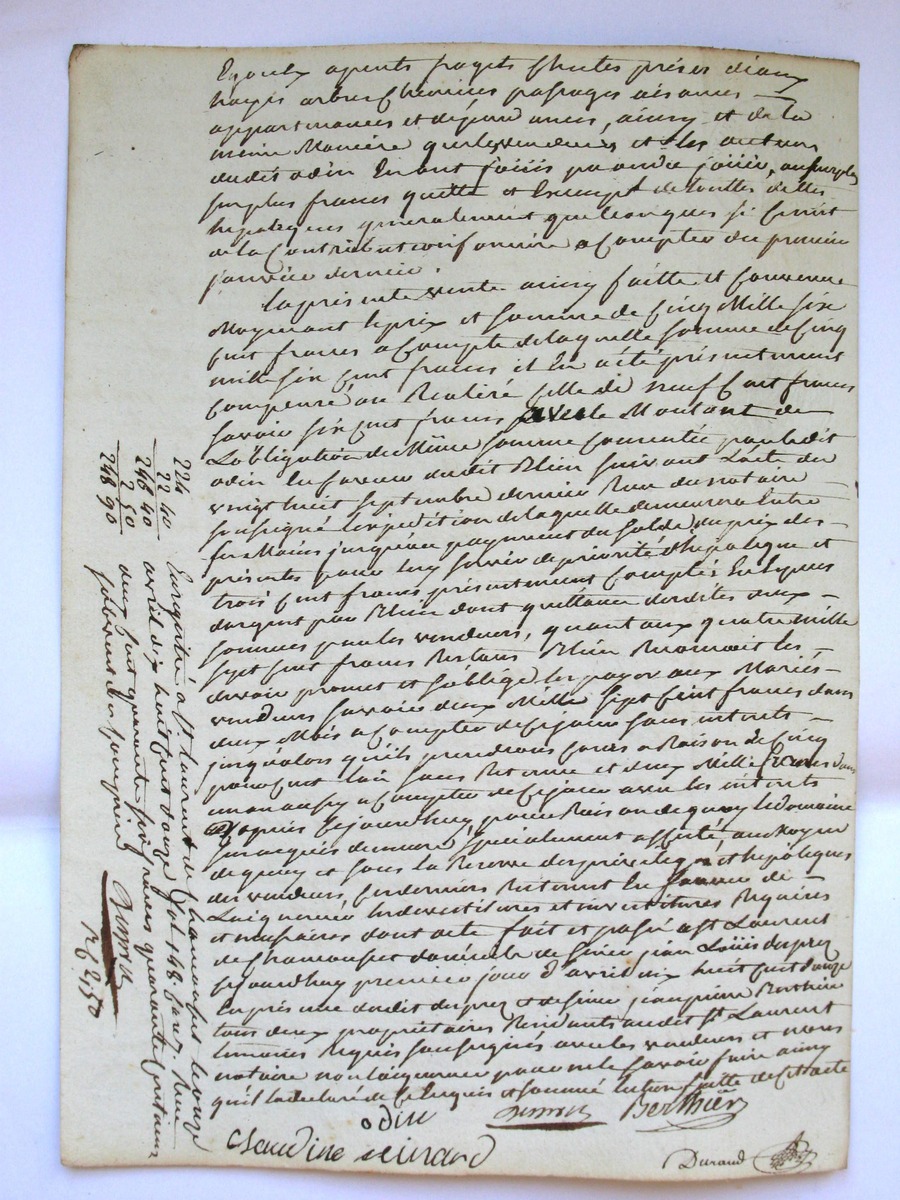 agents fragets Chutes prises d'eaux
hayes arbres Chemins passages aisances
appartenances et dépendances, ainsy et de la
même Manière que les vendeurs et les auteurs
dudit odin En ont joüis pu ou dû joüir, au surplus
surplus francs quitte et Exempt de touttes dettes
hypoteques generalement quelconques si Ce n'est
de la Contribution fonciere a Compter du premier
janvier dernier.
La présente vente ainsy faitte et Convenue
Moyenant le prix et somme de Cinq Mille six
Cent francs a Compte de laquelle somme de Cinq
mille six Cent francs il En a été présentement
Compensé ou Realisé Celle de neuf Cent francs
savoir six Cent francs avec le Montant de
L'obligation de Même somme Consentie par ledit
odin En faveur dudit Rhin suivant L'acte du
vingt huit septembre dernier Reçu du notaire
soussigné l'expedition de laquelle demeurera Entre
ses Mains jusqu'au payement du solde du prix des
présentes pour luy servir de priorité d'hypoteque et
trois Cent francs présentement Comptés En Especes
d'argent par Rhin dont quittance desdites deux
sommes par les vendeurs, quant aux quatre Mille
sept Cent francs Restans Rhin Reconnoit les
devoir promet et s'oblige les payer aux Mariés
vendeurs savoir deux Mille sept Cent francs dans
deux Mois a Compter de Ce jour sans interets
jusqu'alors qu'ils prendrons Cours a Raison de Cinq
pour Cent l'an sans Retenue et deux Mille francs dans
un an aussy a Compter de Ce jour avec les interets
d'apres Ce jourd'huy pour Raison de quoy le Domaine
sus acquis demeure specialement affecté, au Moyen
de quoy et sous la Reserve des privileges et hypoteques
des vendeurs, Ces derniers
L'acquereur Indevestitures et investitures Requises
et necessaires dont acte fait et passé a St Laurent
de Chamousset domicile de sieur jean Loüis duprez
Ce jourd'huy premier jour d'avril dix huit Cent douze
En présence dudit duprez et de sieur jean pierre Berthier
tous deux proprietaires Residants audit St Laurent
temoins Requis soussignés avec les vendeurs et nous
notaire non l'acquereur pour ne le savoir faire ainsy
qu'il l'a declaré de Ce Enquis et sommé lecture faitte de Cet acte
odin
Berthier
Claudine
Durand
224
22 40
246 40
2 50
248 90
Enregistré a St Laurent de Chamousset le onze
avril dix huit Cent douze fol. 148. Reçu
deux Cent quarante six francs quarante Centimes
2,50